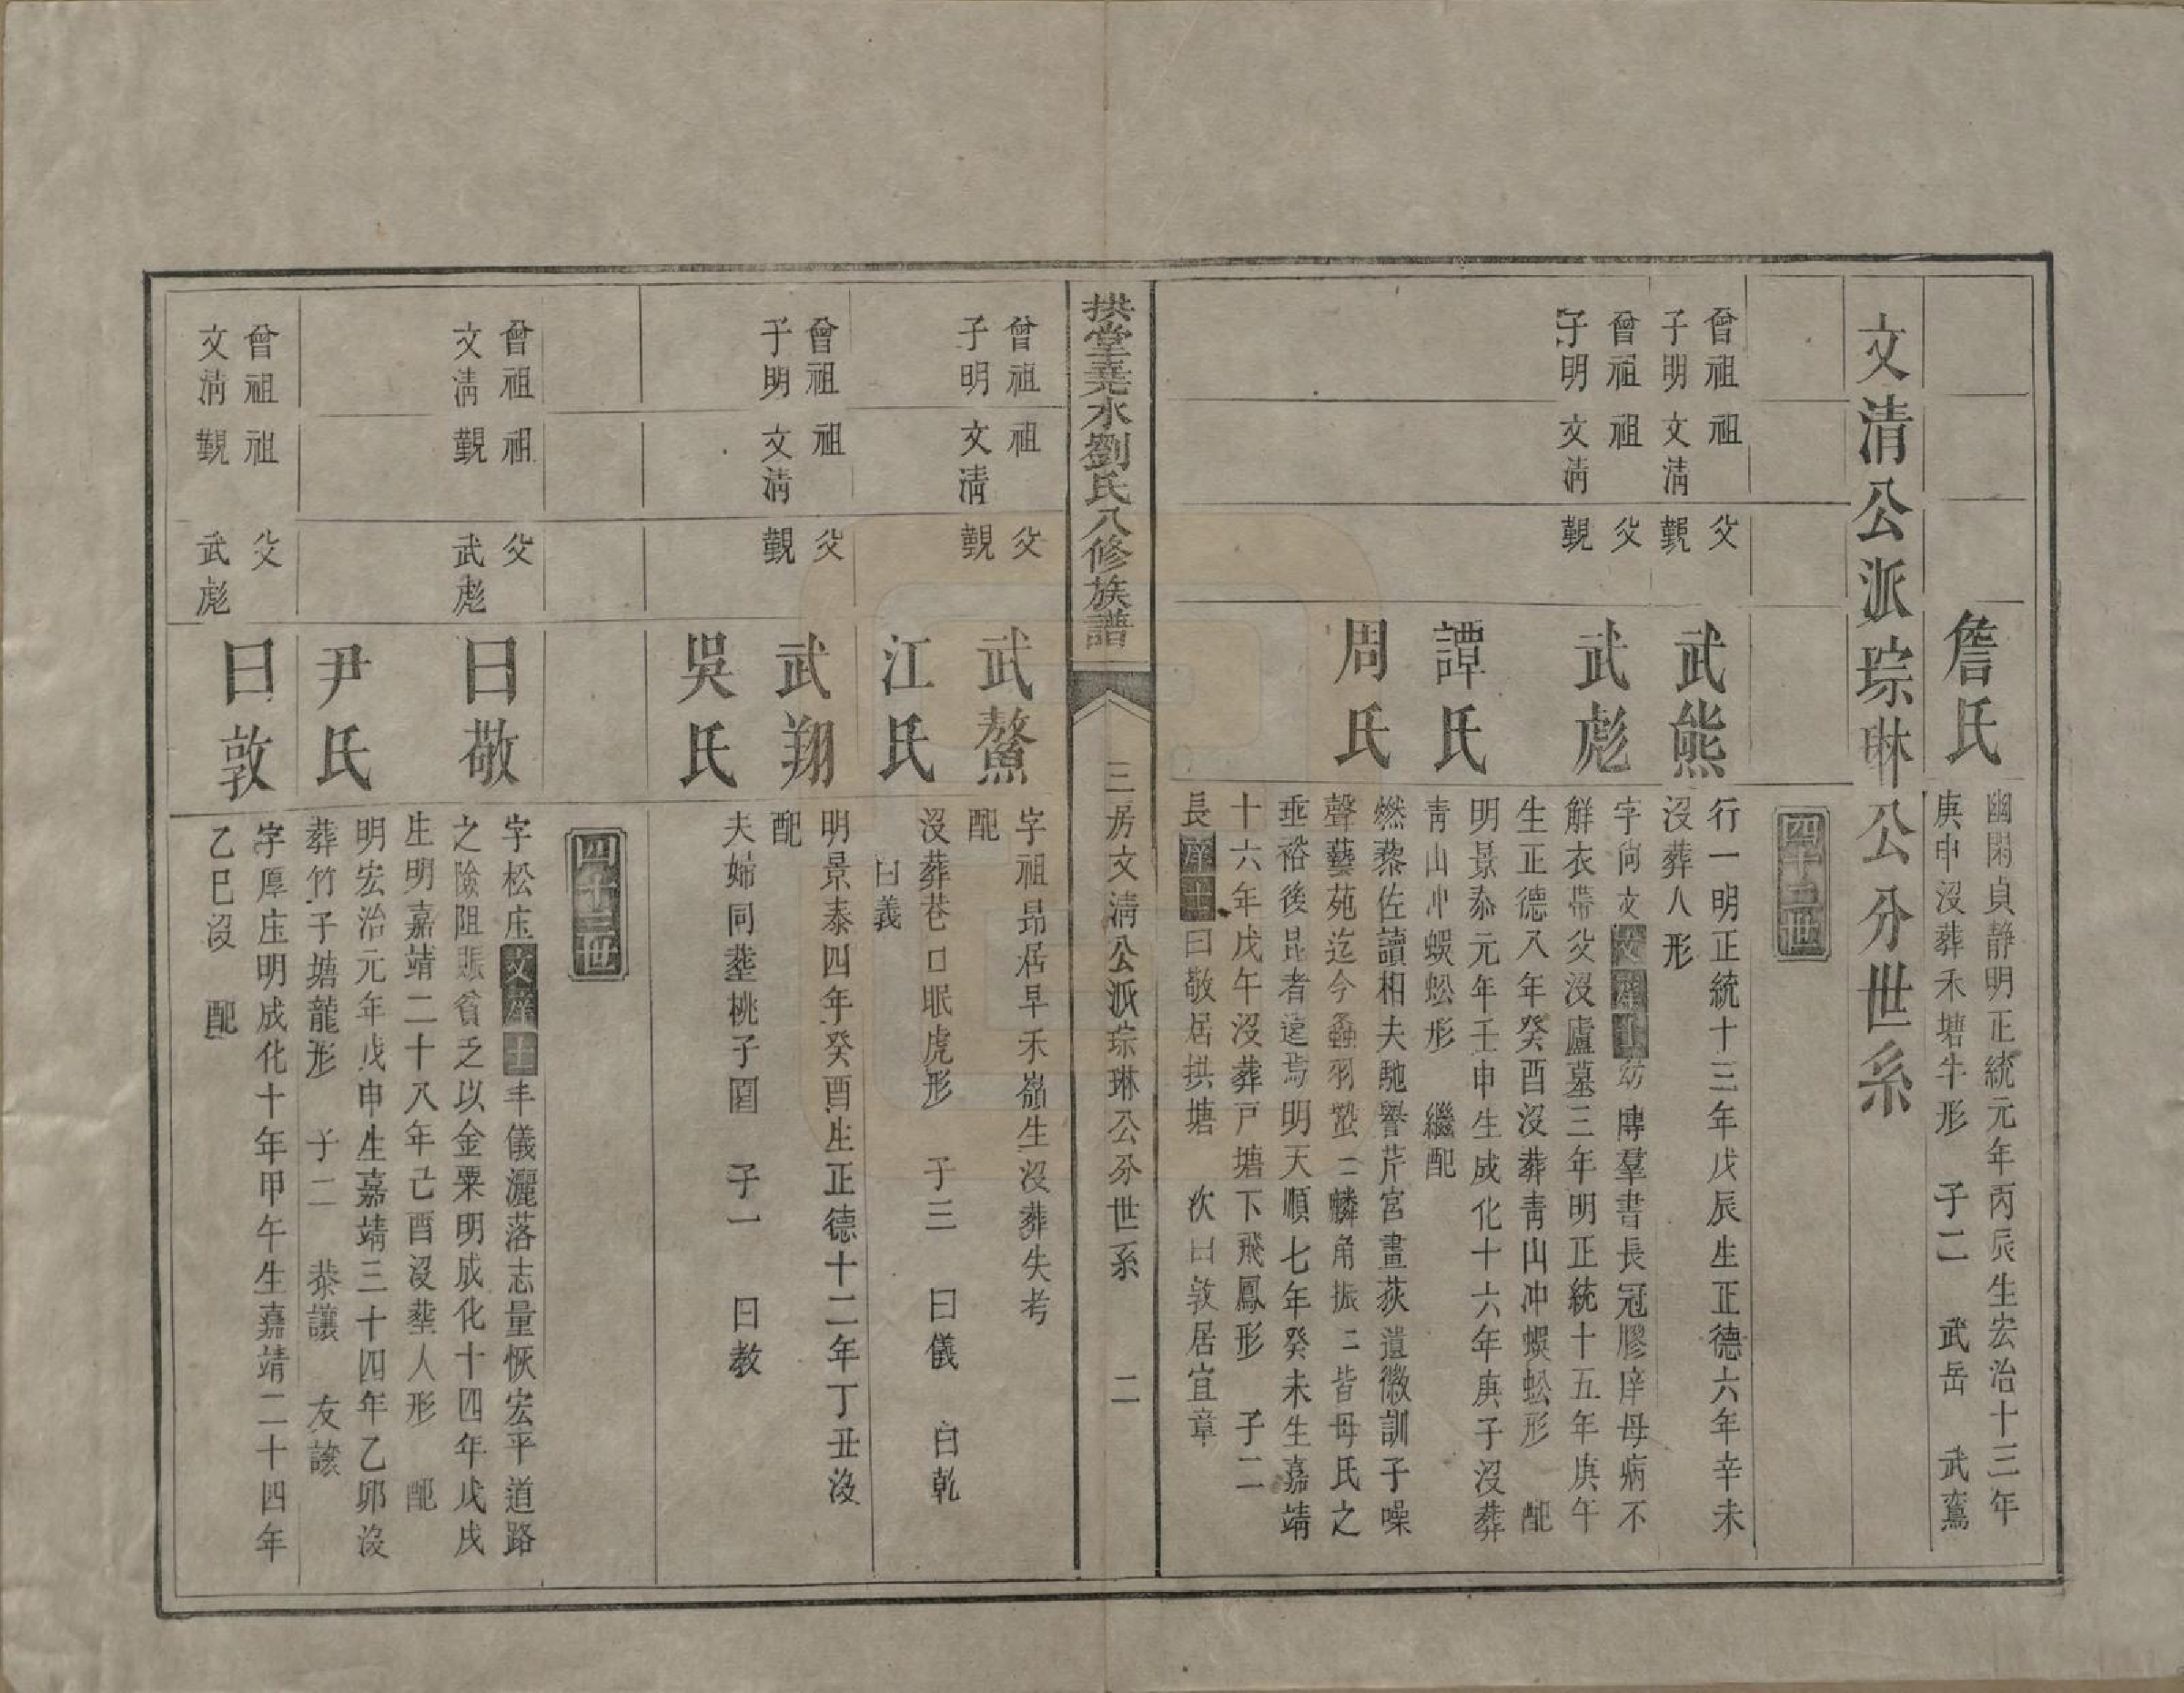 詹氏
幽閑貞静明正統元年丙辰生宏治十三年
庚申沒葬禾塘牛形 子二 武岳 武鸞
文清公派琮琳公分世系
四十二世
曾祖 祖 父
子明 文清 觀
武熊
行一明正統十三年戊辰生正德六年辛未
沒葬人形
曾祖 祖 父
子明 文清 觀
武彪
字尙文文庠士幼博羣書長冠膠庠母病不
解衣帶父沒廬墓三年明正統十五年庚午
生正德八年癸酉沒葬靑山冲蜈蚣形 配
譚氏
明景泰元年壬申生成化十六年庚子沒葬
靑山冲蜈蚣形 繼配
周氏
燃藜佐讀相夫馳譽芹宮畫荻遺徽訓子噪
聲藝苑迄今螽羽蟄二麟角振二皆母氏之
垂裕後昆者遠焉明天順七年癸未生嘉靖
十六年戊午沒葬戸塘下飛鳳形 子二
長庠士曰敬居拱塘 次曰敦居宜章
拱堂堯水劉氏八修族譜
三房文淸公派琮琳公分世系 二
曾祖 祖 父
子明 文淸 觀
武鰲
字祖昂居早禾嶺生沒葬失考
配
江氏
沒葬巷口眠虎形 子三 曰儀 曰乾
曰義
曾祖 祖 父
子明 文淸 觀
武翔
明景泰四年癸酉生正德十二年丁丑沒
配
吳氏
夫婦同塟桃子園 子一 曰教
四十三世
曾祖 祖 父
文淸 觀 武彪
曰敬
字松庄文庠士丰儀灑落志量恢宏平道路
之險阻賑貧乏以金粟明成化十四年戊戌
生明嘉靖二十八年己酉沒塟人形 配
尹氏
明宏治元年戊申生嘉靖三十四年乙卯沒
葬竹子塘龍形 子二 恭讓 友諒
曾祖 祖 父
文淸 觀 武彪
曰敦
字厚庄明成化十年甲午生嘉靖二十四年
乙巳沒 配